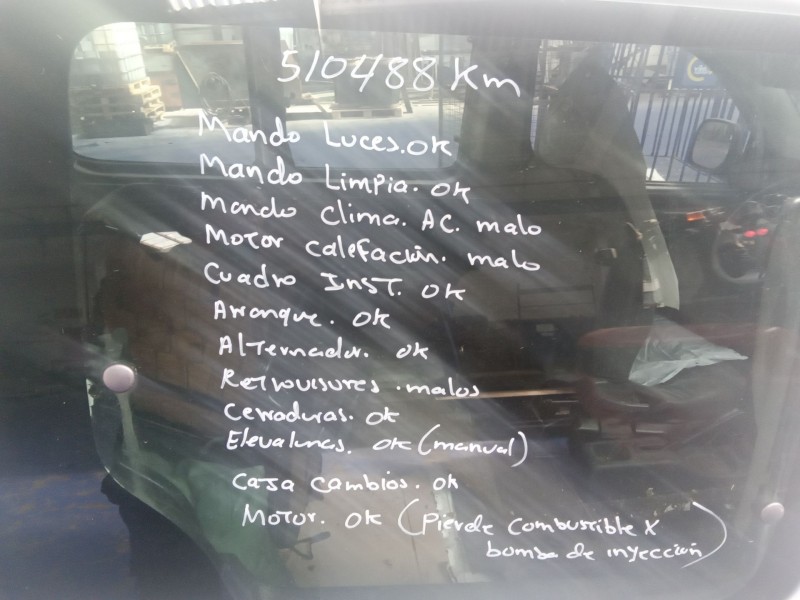 510488 Km
Mando Luces. OK
Mando Limpia. OK
Mando clima. AC. malo
Motor calefación. malo
Cuadro INST. OK
Arranque. OK
Alternador. OK
Retrovisores. malos
Cerraduras. OK
Elevalunas. OK (manual)
Caja cambios. OK
Motor. OK (Pierde combustible X
bomba de inyección)